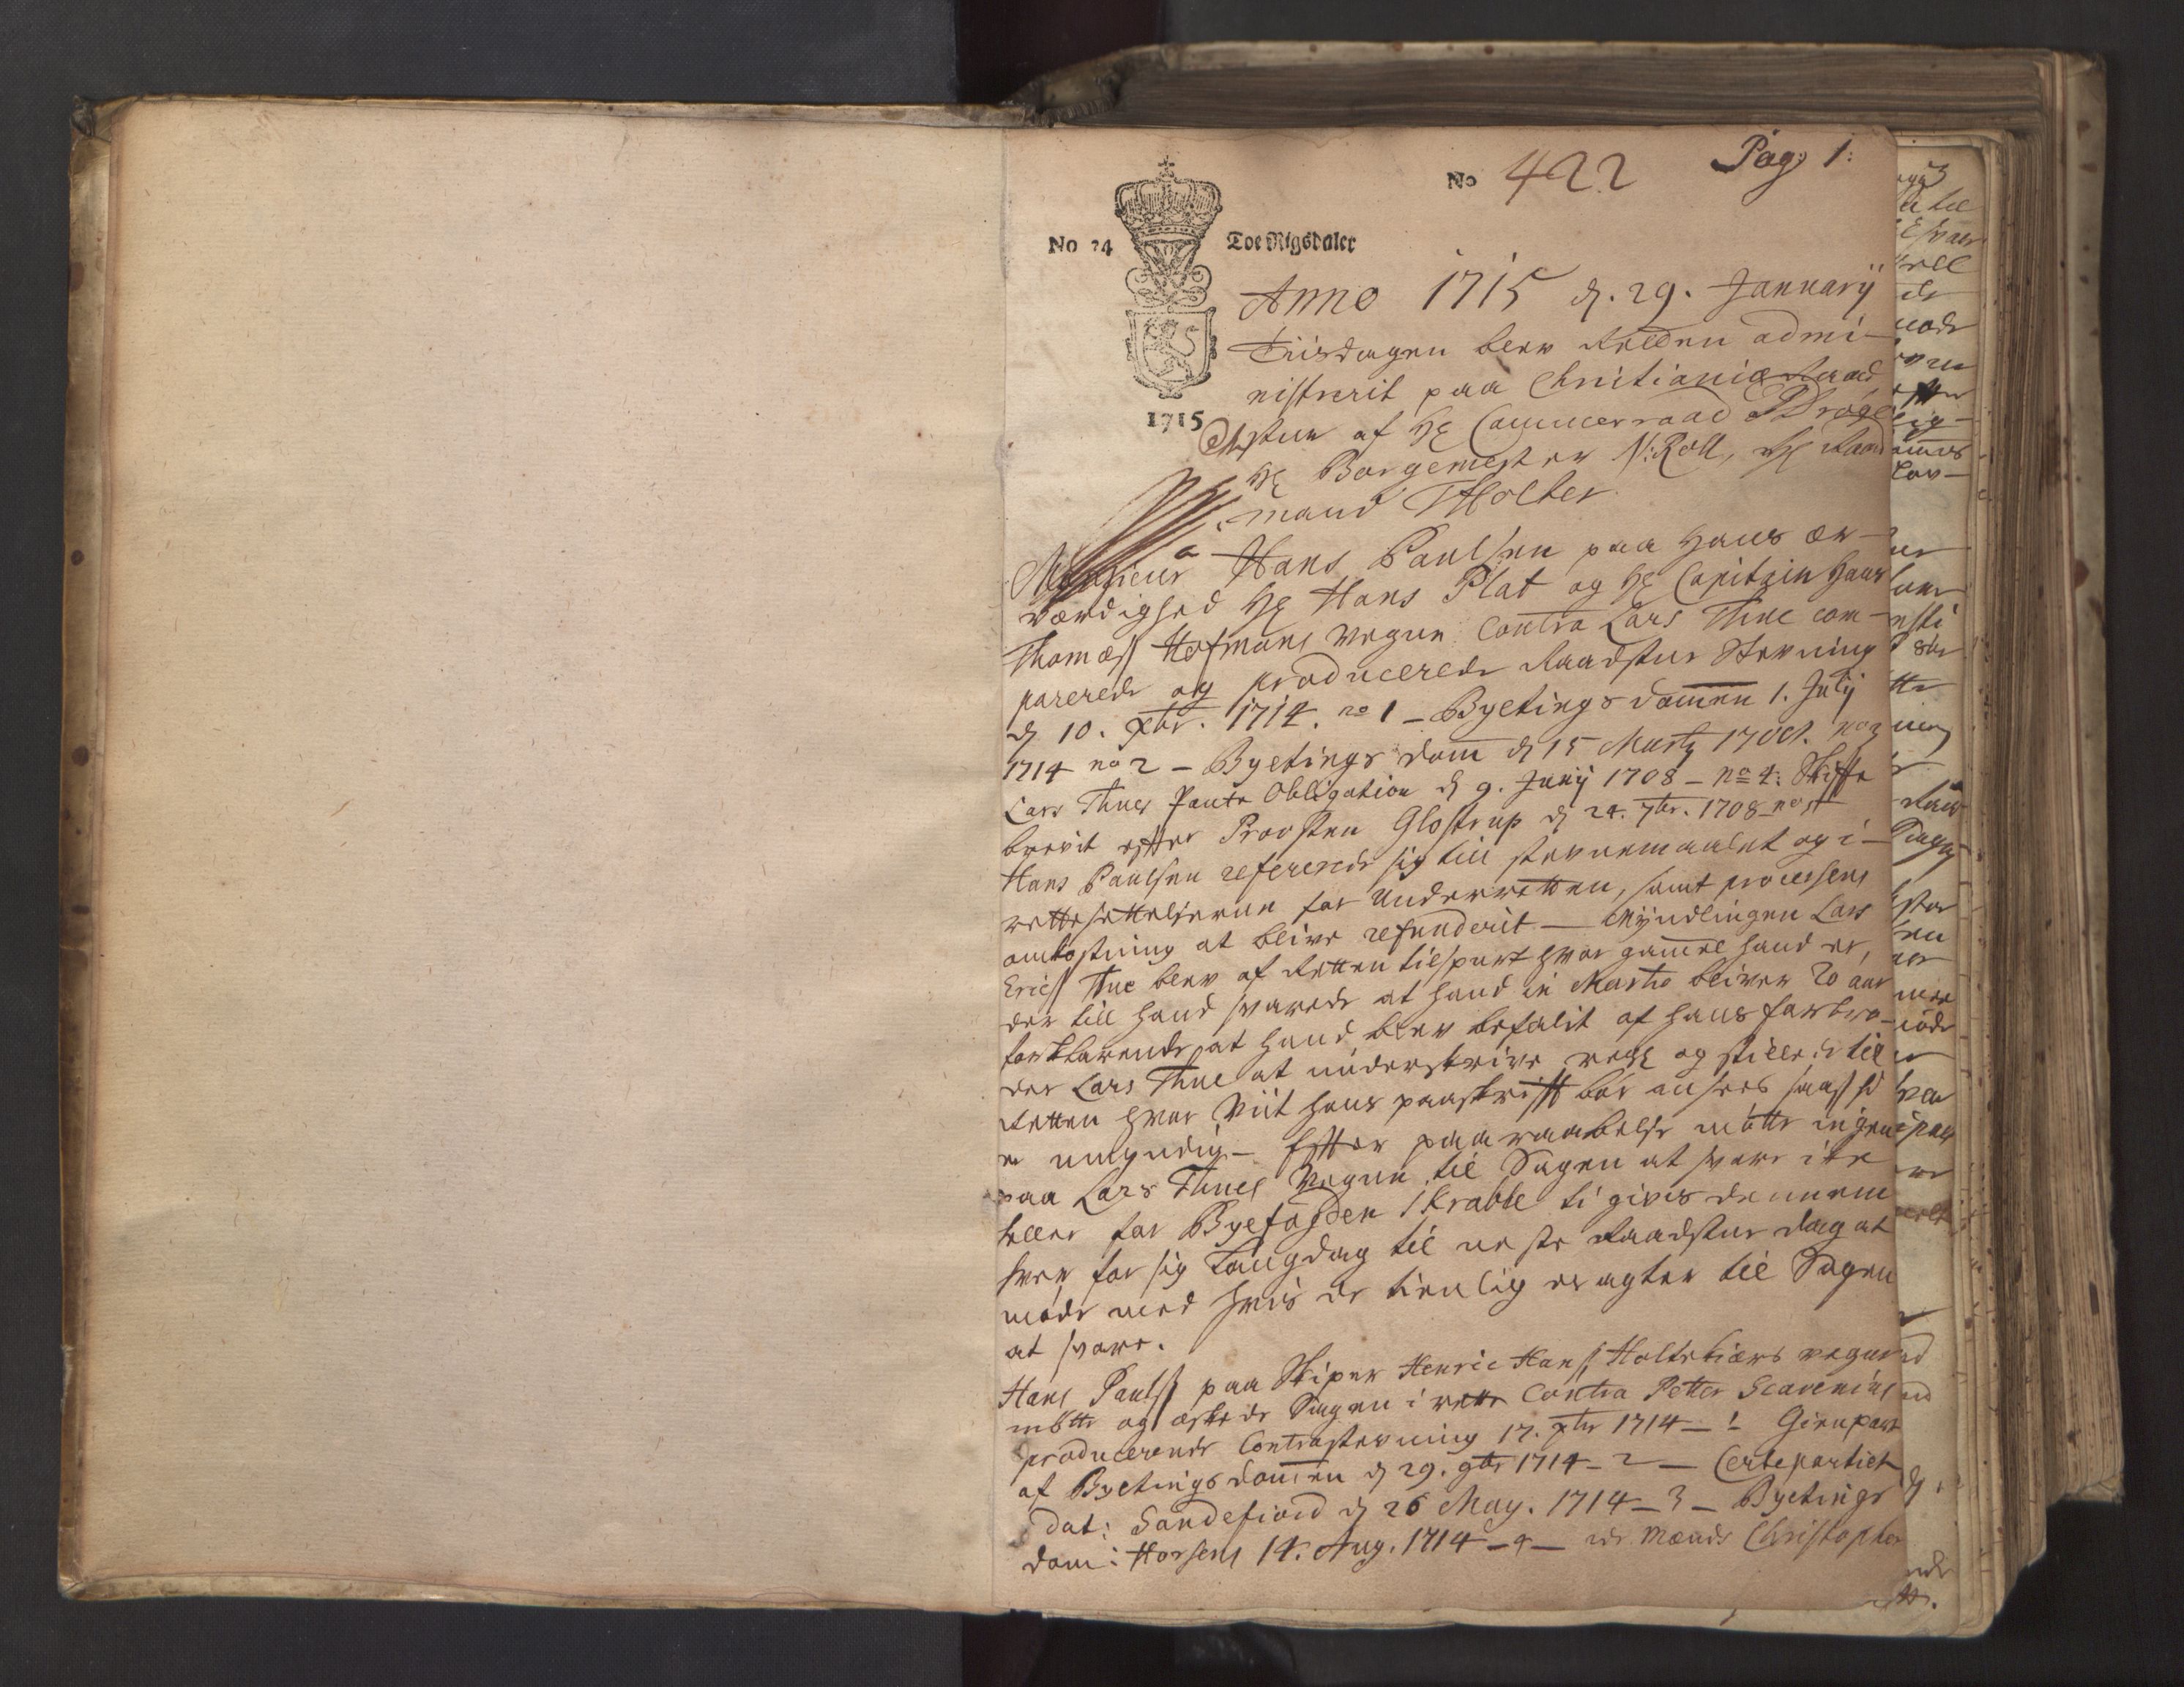 No 422 Pag: 1:
No 24 Toe Rigsdaler
1715
Anno 1715 d. 29. Januarij
Tiisdagen blev Retten admi-
nistrerit paa Christianiæ Raad
stue af Hr Cammerraad
Hr Borgemester N: Roll, Hr Raad
mand THolter
Monsieur Hans Paulsen paa Hans ær-
værdighed Hr Hans Plat og Hr Capitain Hans
Thomæss Hofmans vegne Contra Lars Thue com-
parerede og producerede Raadstue Stevning
d 10. Xbr. 1714. no 1 - Byetings dommen 1. July
1714 no 2 - Byetings dom d 15 Martij no 3
Lars Thues Pante Obligation d 9. Junij 1708 - no 4: Skiffte
brevit effter Provsten Glostrup d 24. 7br. 1708 no
Hans Paulsen refererede sig till stevnemaalet og i-
rettesettelserne for Underretten, samt processens
omkostning at blive refunderit - Myndlingen Lars
Ericss Thue blev af Retten tilspurt hvor gammel hand er,
der till hand svarede at hand in Martio bliver 20 aar
forklarende at hand blev befalit af hans farbro-
der Lars Thue at underskrive, og stillede till
Retten hvor viit hans paaskrifft bør ansees saasom hand
er umyndig - Effter paaraabelse mötte ingen
paa Lars Thues vegne til Sagen at svare icke
heller for Byefogden Krabbe ti gives dennem
hver for sig Laugdag til neste Raadstue dag at
møde med hvis de tienlig eragter til Sagen
at svare.
Hans Paulss paa Skiper Henric Hanss Holtebiærs vegne
mötte og æskede Sagen i rette Contra Petter Scavenius
producerende Contrastevning 17. 1714 - 1 Gienpart
af Byetings dommen d 29. 9br 1714 - 2 - Certepartiet
dat: Sandefiord d 26 May. 1714 - 3 - Byetings
dom: Horsens 14. Aug. 1714 - 4 - Mænds Christopher